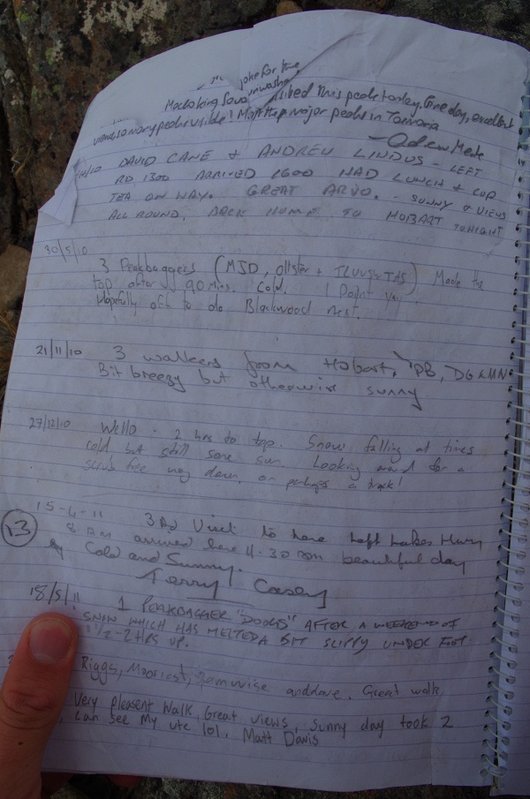 joke for the
this peak today, fine day, excellent
views, so many peaks visible! Most major peaks in Tasmania
DAVID CANE & ANDREW LINDUS - LEFT
RD 1300 ARRIVED 1600 HAD LUNCH & CUP
TEA ON WAY. GREAT ARVO. - SUNNY & VIEWS
ALL ROUND. BACK HOME TO HOBART TONIGHT
30/5/10
3 Peakbaggers (MJD, ollster + ILUVSWTAS) Made the
top after 90 mins. Cold. 1 Point yay
Hopefully off to do Blackwood next.
21/11/10 3 walkers from Hobart, PB, DG & MN
Bit breezy but otherwise sunny
27/12/10 Hello - 2 hrs to top. Snow falling at times
cold but still some sun. Looking around for a
scrub free way down, or perhaps a track!
15-4-11
13 3rd Visit to here Left Lakes Hwy
8 AM arrived here 11.30 beautiful day
Cold and Sunny.
Terry Casey
18/5/11 1 PEAKBAGGER "DOOGS" AFTER A WEEKEND OF
SNOW WHICH HAS MELTED A BIT SLIPPY UNDER FOOT
1 1/2-2 HRS UP.
Riggs, Great walk,
Very pleasent walk, Great views, Sunny day took 2
can see my ute lol. Matt Davis